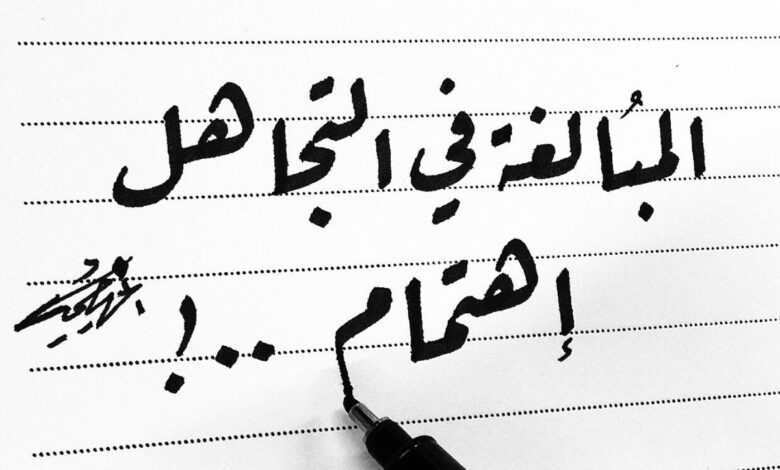 المبُالغة في التجاهل
إهتمام ..!